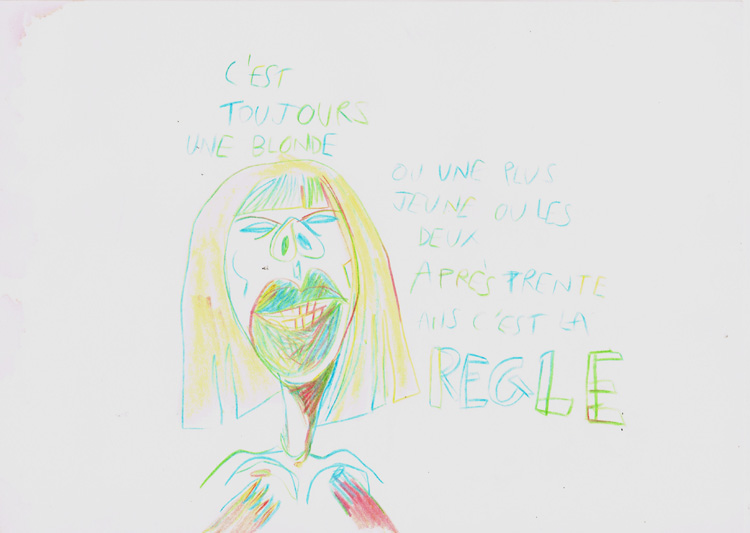 C'EST
TOUJOURS
UNE BLONDE
OU UNE PLUS
JEUNE OU LES
DEUX
APRÈS TRENTE
ANS C'EST LA
REGLE